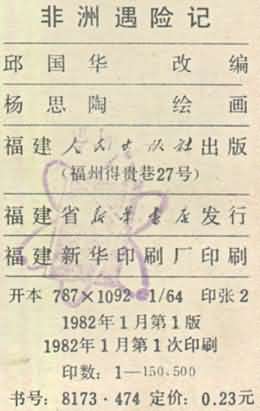 非洲遇险记
邱国华 改编
杨思陶 绘画
福建人民出版社出版
(福州得贵巷27号)
福建省新华书店发行
福建新华印刷厂印刷
开本 787×1092 1/64 印张 2
1982年1月第1版
1982年1月第1次印刷
印数：1—150,500
书号：8173·474 定价：0.23元